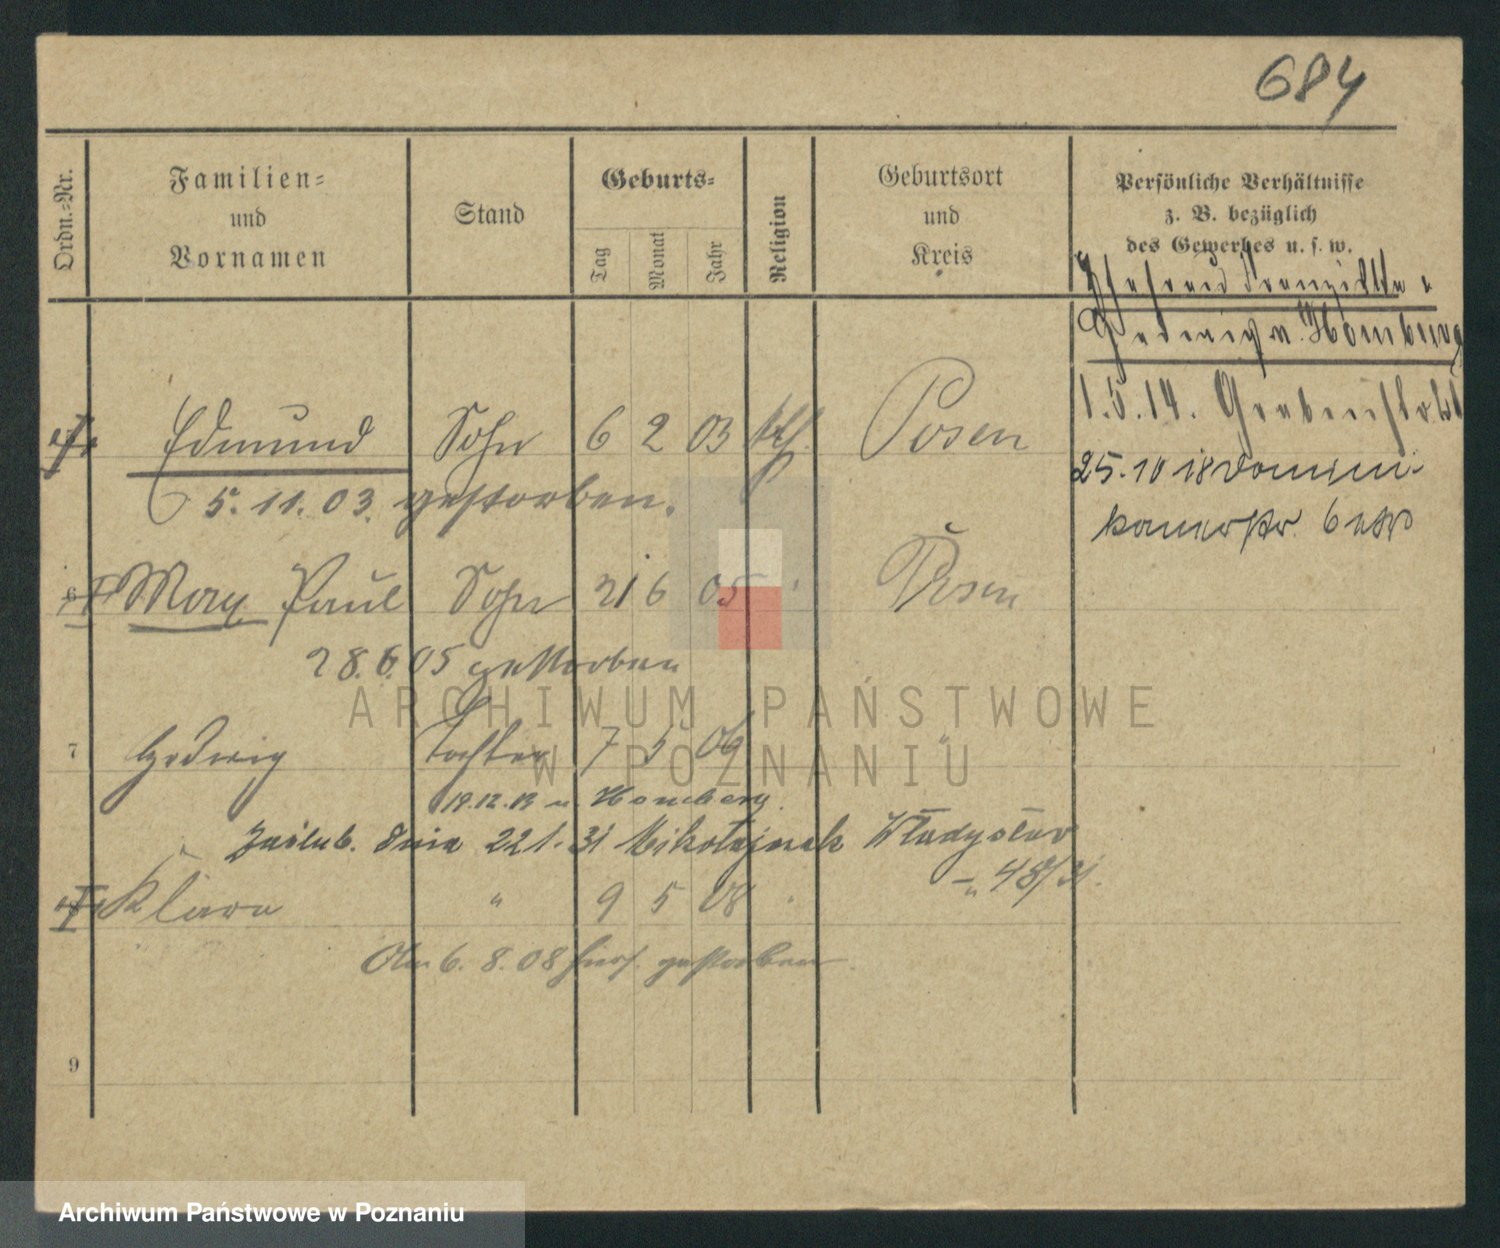 684
Ordn.-Nr.
Familien-
und
Vornamen
Stand
Geburts-
Tag
Monat
Jahr
Religion
Geburtsort
und
Kreis
Persönliche Verhältnisse
z. B. bezüglich
des Gewerbes u. s. w.
Hedwig n. Homburg
1.5.14.
25.10 18
Edmund Sohn 6 2 03 kth. Posen
5. 11. 03. gestorben.
6 Max Paul Sohn 21 6 05 Posen
28.6.05 gestorben
7 Hedwig Tochter 7 5 06 "
19.12.19 n. Homberg.
Zaślub. dnia 22 1. 31 Mikołajczak Władysław
48/31.
Klara " 9 5 08 "
Am 6. 8. 08 hier gestorben.
9
ARCHIWUM PAŃSTWOWE
W POZNANIU
Archiwum Państwowe w Poznaniu